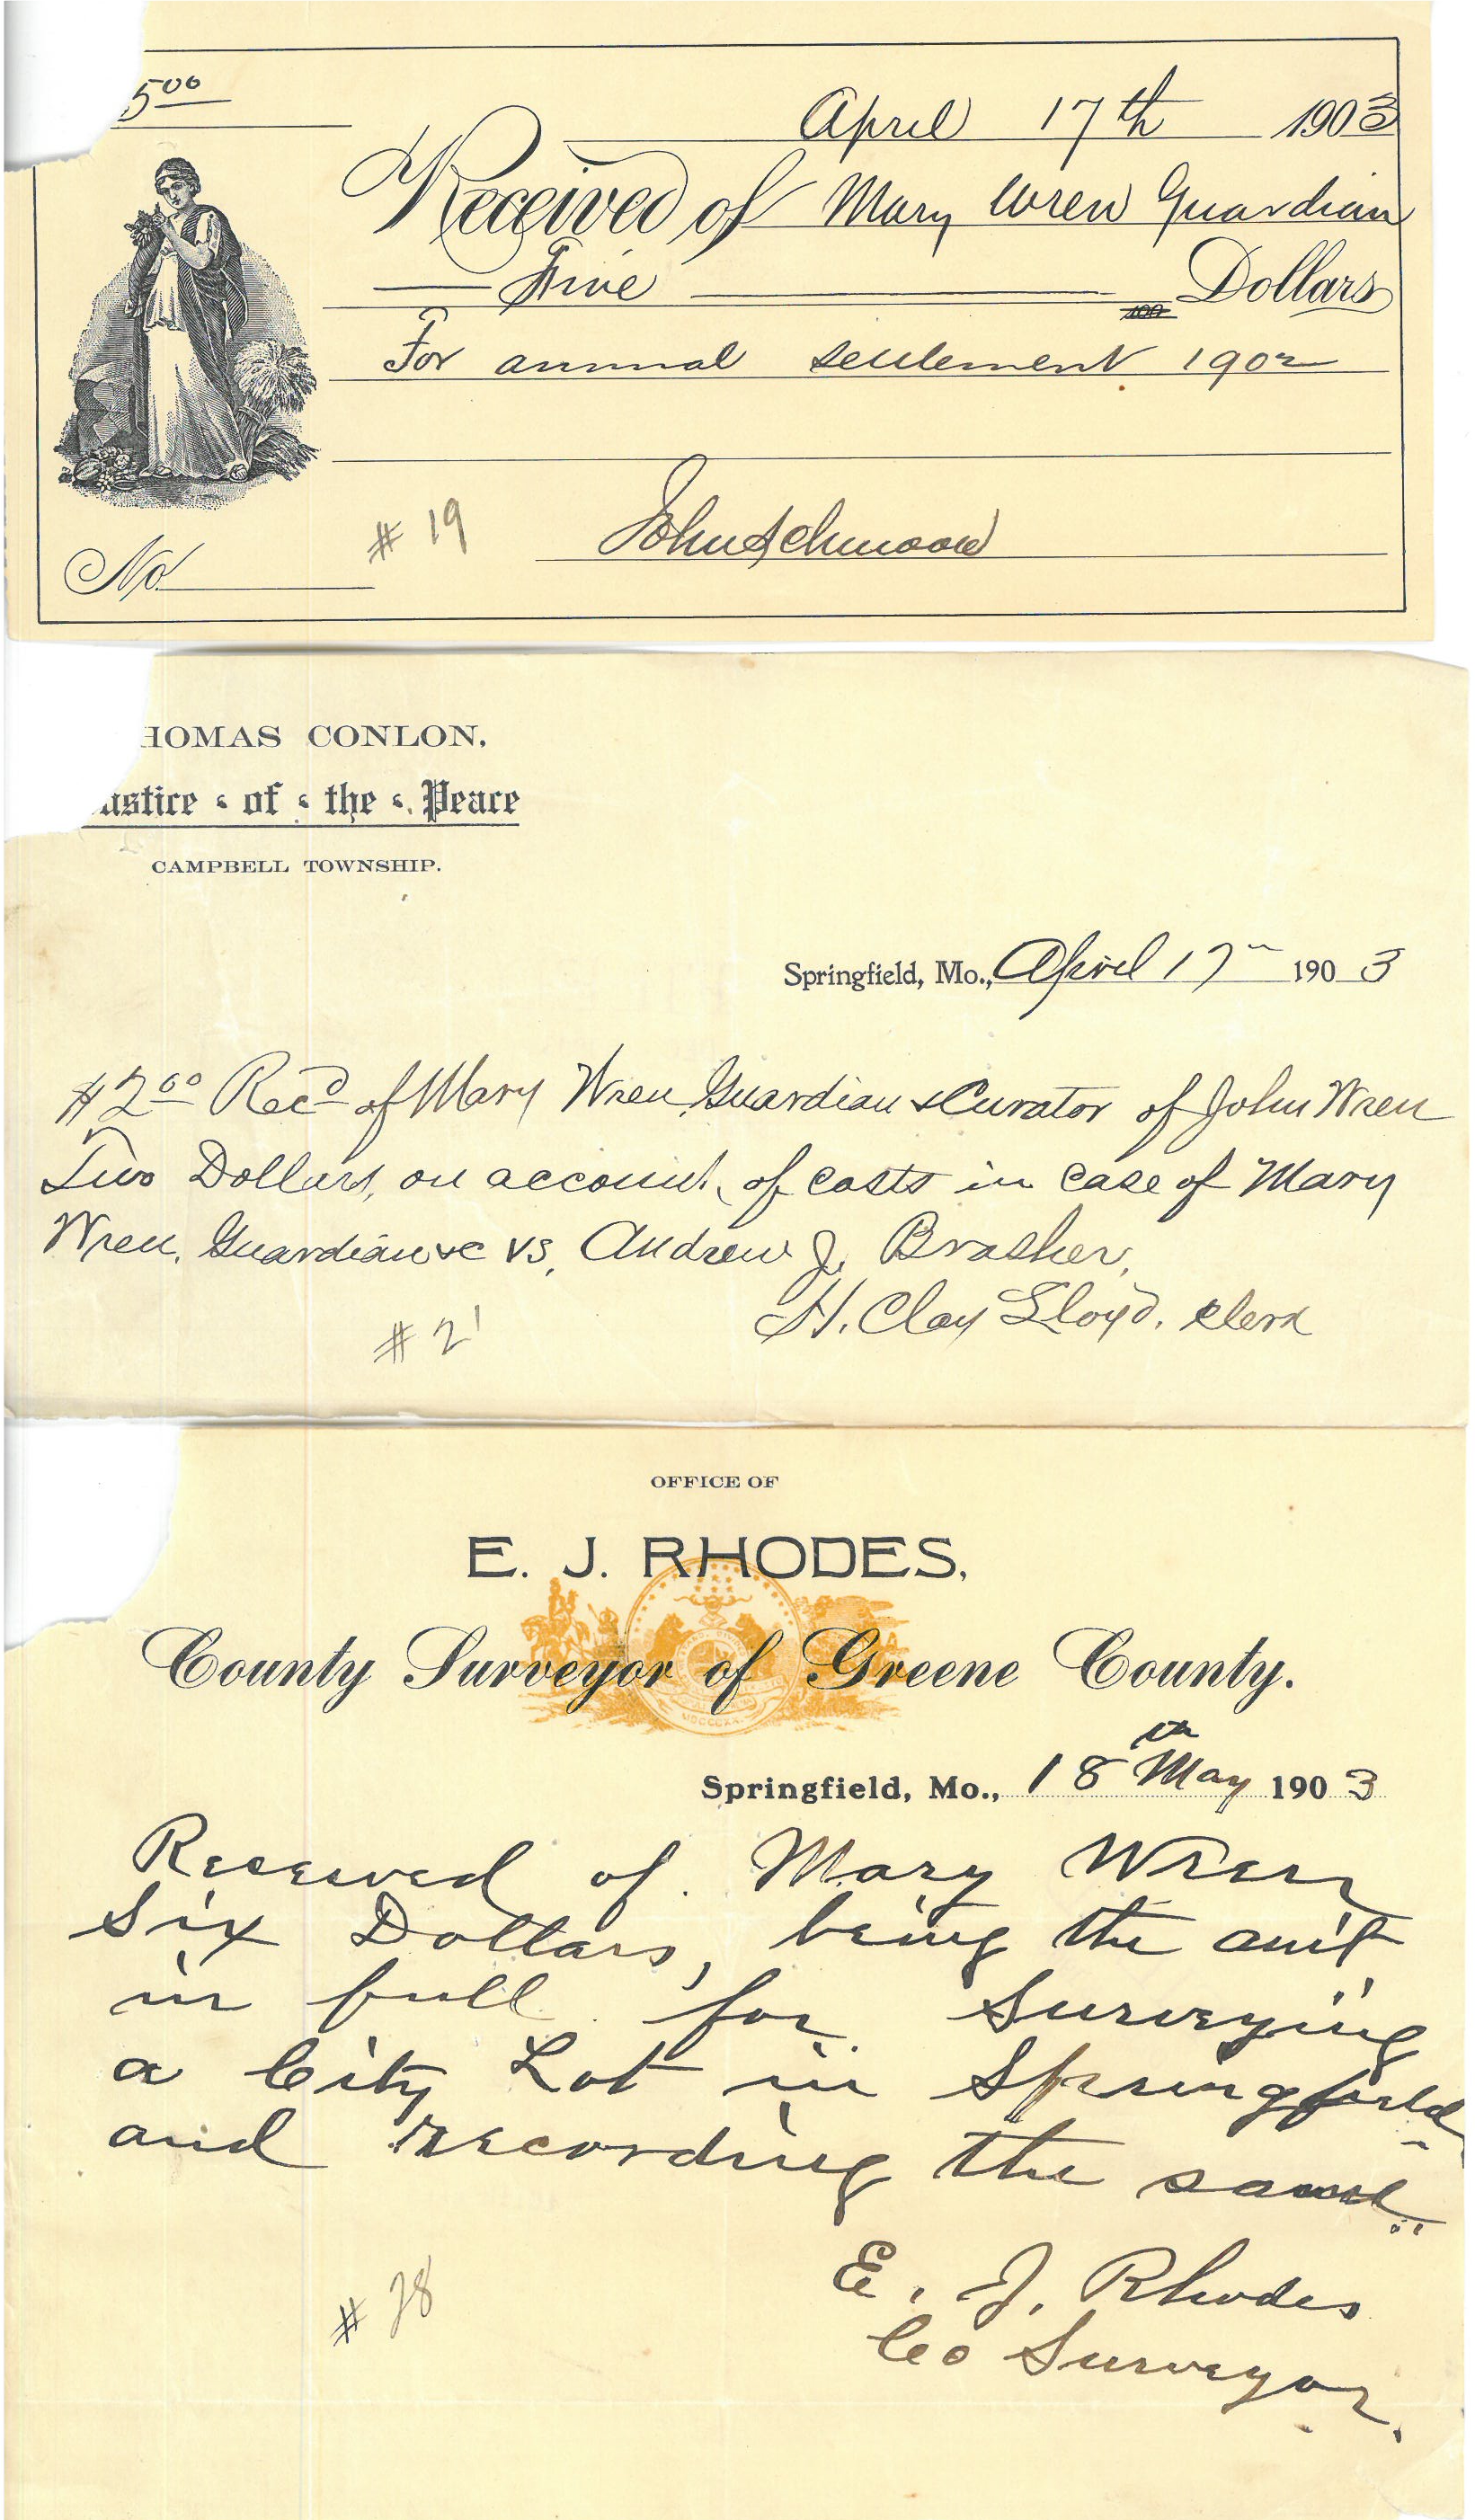 5 00
April 17th 1903
Received of Mary Wren Guardian
Five Dollars
100
For annual settlement 1902
No. # 19 John Schmook
HOMAS CONLON,
ustice of the Peace
CAMPBELL TOWNSHIP.
Springfield, Mo., April 17 1903
$2 00 Rec'd of Mary Wren, Guardian & Curator of John Wren
Two Dollars, on account, of costs in case of Mary
Wren, Guardian &c vs, Andrew J. Brasher,
H. Clay Lloyd, Clerk
# 21
OFFICE OF
E. J. RHODES,
County Surveyor of Greene County.
Springfield, Mo., 18th May 1903
Received of Mary Wren
Six Dollars, being the am't
in full for Surveying
a City Lot in Springfield
and recording the same
E. J. Rhodes
Co Surveyor.
# 28